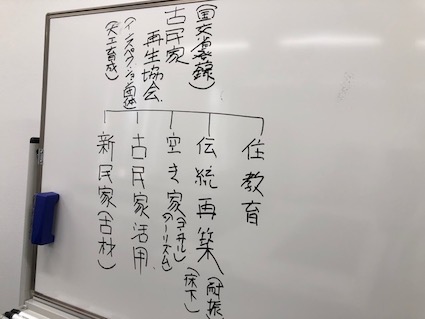 (国交省登録)
古民家
再生協会
(インスペクション団体)
(大工育成)
住教育
伝統再築(耐振)
(床下)
空き家(コンサル)
(ツーリズム)
古民家活用
新民家(古材)